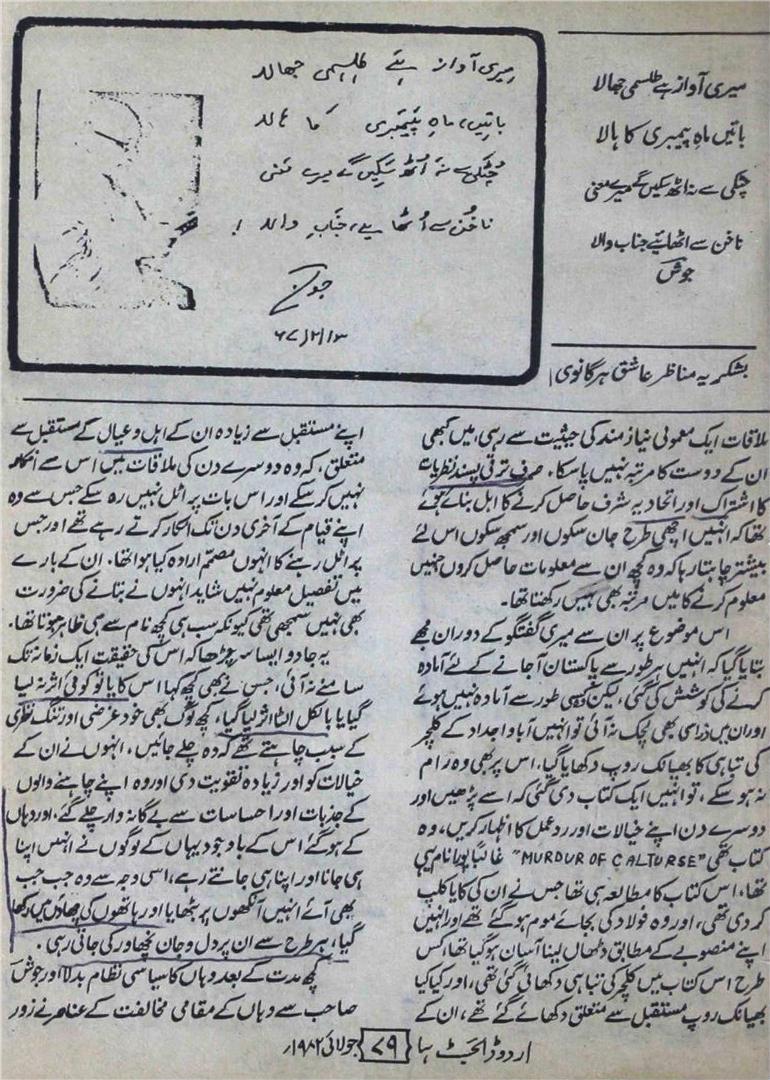 میری آواز ہے طلسمی جھالا
باتیں، ماہِ پیمبری کا ہالا
چٹکی سے نہ اُٹھ سکیں گے میرے معنی
ناخن سے اُٹھائیے، جنابِ والا !
جوش
میری آواز ہے طلسمی جھالا
باتیں ماہِ پیمبری کا ہالا
چٹکی سے نہ اٹھ سکیں گے میرے معنی
ناخن سے اٹھایئے جناب والا
جوش
بشکریہ مناظر عاشق ہرگانوی
ملاقات ایک معمولی نیاز مند کی حیثیت سے رہی، میں کبھی
ان کے دوست کا مرتبہ نہیں پا سکا، صرف ترقی پسند نظریات
کا اشتراک اور اتحاد یہ شرف حاصل کرنے کا اہل بنائے ہوئے
تھا کہ انہیں اچھی طرح جان سکوں اور سمجھ سکوں اس لئے
بیشتر چاہتا رہا کہ وہ کچھ ان سے معلومات حاصل کروں جنہیں
معلوم کرنے کا میں مرتبہ بھی نہیں رکھتا تھا۔
اس موضوع پر ان سے میری گفتگو کے دوران مجھے
بتایا گیا کہ انہیں ہر طور سے پاکستان آ جانے کے لئے آمادہ
کرنے کی کوشش کی گئی، لیکن وہ کسی طور سے آمادہ نہیں ہوئے
اور ان میں ذرا سی بھی لچک نہ آئی تو انہیں آباو اجداد کے کلچر
کی تباہی کا بھیانک روپ دکھایا گیا۔ اس پر بھی وہ رام
نہ ہو سکے، تو انہیں ایک کتاب دی گئی کہ اسے پڑھیں اور
دوسرے دن اپنے خیالات اور ردعمل کا اظہار کریں، وہ
کتاب تھی "MURDUR OF CALTURSE" غالباً پورا نام یہی
تھا، اس کتاب کا مطالعہ ہی تھا جس نے ان کی کایا کلپ
کر دی تھی، اور وہ فولاد کی بجائے موم ہو گئے تھے اور انہیں
اپنے منصوبے کے مطابق ڈھال لینا آسان ہو گیا تھا، کس
طرح اس کتاب میں کلچر کی تباہی دکھائی گئی تھی، اور کیا کیا
بھیانک روپ مستقبل سے متعلق دکھائے گئے تھے، ان کے
اپنے مستقبل سے زیادہ ان کے اہل و عیال کے مستقبل سے
متعلق، کہ وہ دوسرے دن کی ملاقات میں اس سے انکار
نہیں کر سکے اور اس بات پر اٹل نہیں رہ سکے جس سے وہ
اپنے قیام کے آخری دن تک انکار کرتے رہے تھے اور جس
پر اٹل رہنے کا انہوں مصمم ارادہ کیا ہوا تھا۔ ان کے بارے
میں تفصیل معلوم نہیں شاید انہوں نے بتانے کی ضرورت
بھی نہیں سمجھی تھی کیونکہ سب ہی کچھ نام سے ہی ظاہر ہوتا تھا۔
یہ جادو ایسا سر چڑھا کہ اس کی حقیقت ایک زمانہ تک
سامنے نہ آئی، جس نے بھی کچھ کہا اس کا یا تو کوئی اثر نہ لیا
گیا یا بالکل الٹا اثر لیا گیا، کچھ لوگ بھی خود غرضی اور تنگ نظری
کے سبب چاہتے تھے کہ وہ چلے جائیں، انہوں نے ان کے
خیالات کو اور زیادہ تقویت دی اور وہ اپنے چاہنے والوں
کے جذبات اور احساسات سے بے گانہ وار چلے گئے، اور وہاں
کے ہو گئے اس کے باوجود یہاں کے لوگوں نے انہیں اپنا
ہی جانا اور اپنا ہی جانتے رہے، اسی وجہ سے وہ جب جب
بھی آئے انہیں آنکھوں پر بٹھایا اور ہاتھوں کی چھاؤں میں رکھا
گیا، ہر طرح سے ان پر دل و جان نچھاور کی جاتی رہی۔
کچھ مدت کے بعد وہاں کا سیاسی نظام بدلا اور جوش
صاحب سے وہاں کے مقامی مخالفت کے عناصر نے زور
اردو ڈائجسٹ ہما ۷۹ جولائی ۱۹۸۲ء